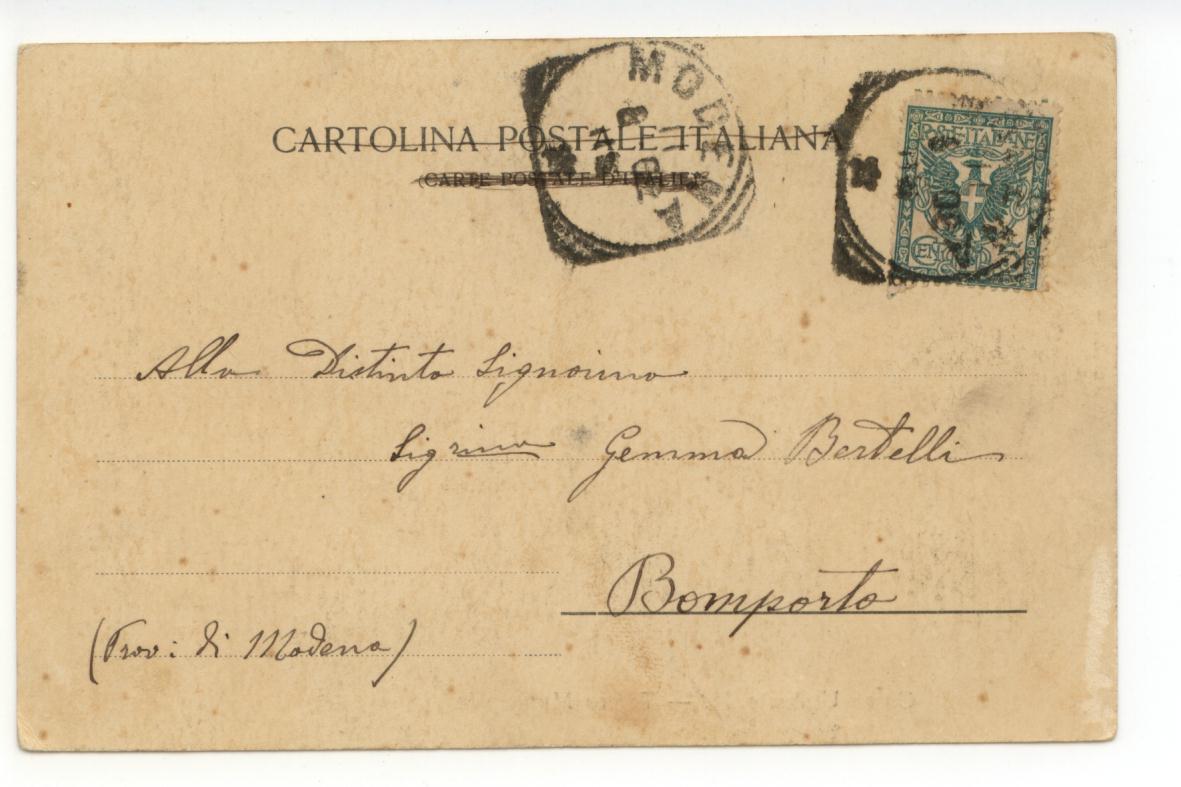 CARTOLINA POSTALE ITALIANA
(CARTE POSTALE D'ITALIE)
MODENA
POSTE ITALIANE
CEN
Alla Distinta Signorina
Sigrina Gemma Bertelli
Bomporto
(Prov: di Modena)